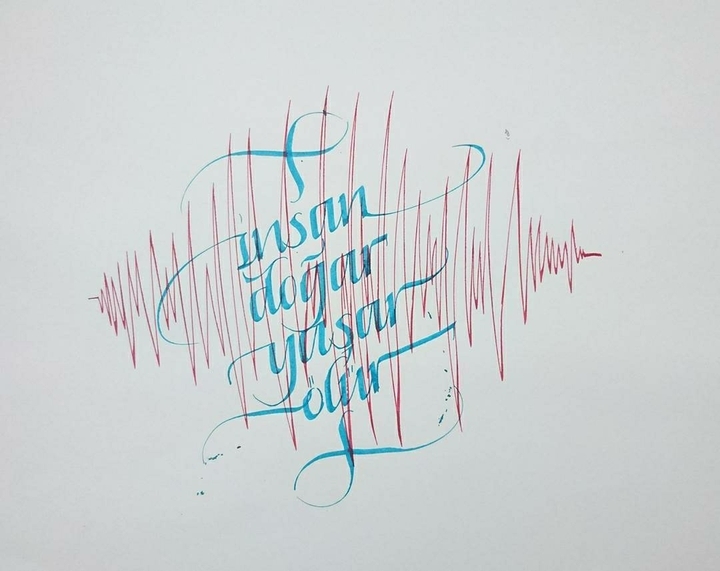 insan
doğar
yaşar
ölür